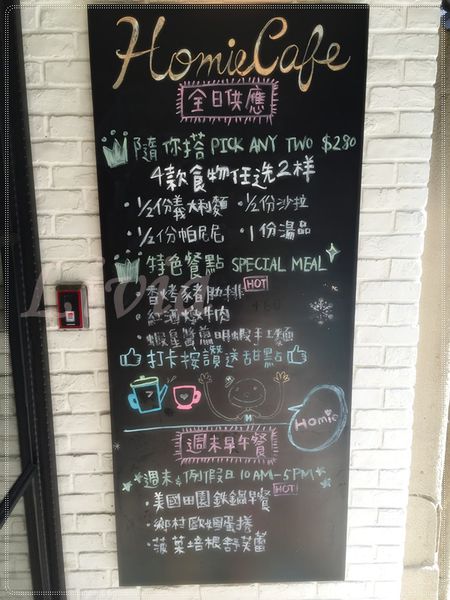 HomieCafe
全日供應
隨你搭 PICK ANY TWO $280
4款食物任选2样
·½份義大利麵 ·½份沙拉
·½份帕尼尼 ·1份湯品
特色餐點 SPECIAL MEAL
·香烤豬肋排 HOT
·紅酒燉牛肉
·蝦星醬煎明蝦手工麵
打卡按讚送甜點
Homie
週末早午餐
週末&例假日10AM-5PM
·美國田園鉄鍋早餐 HOT
·鄉村歐姆蛋捲
·菠菜培根舒芙蕾